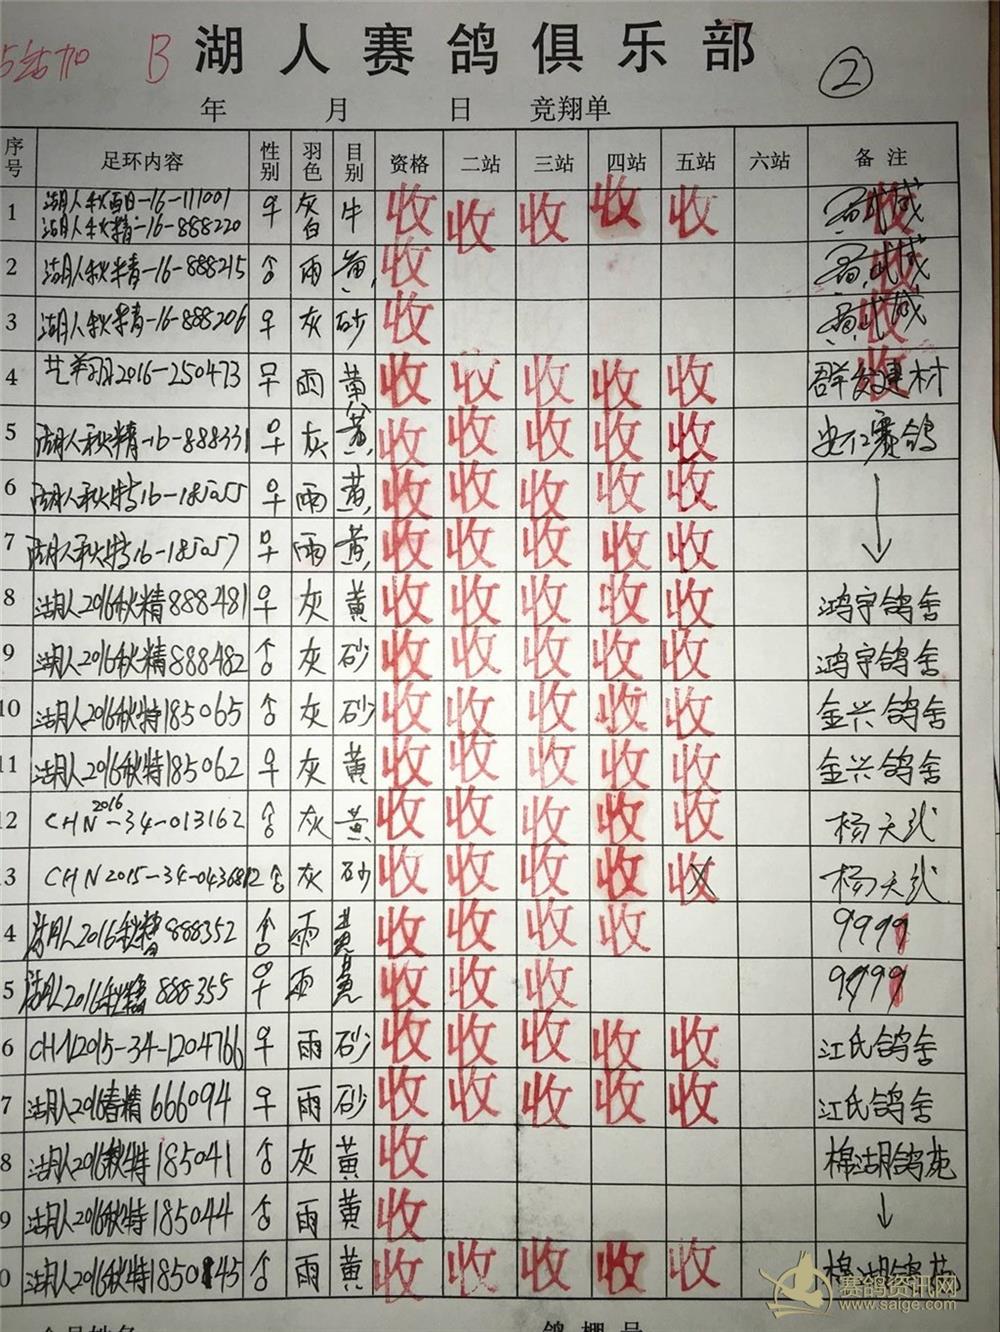 5站加 B 湖人赛鸽俱乐部 ②
年 月 日 竞翔单
序号 足环内容 性别 羽色 目别 资格 二站 三站 四站 五站 六站 备注
1 湖人秋西日-16-111001 ♀ 灰白 牛 收 收 收 收 收 收
湖人秋精-16-888220
2 湖人秋精-16-888215 雨 黄 收 收
3 湖人秋精-16-888206 ♀ 灰 砂 收 收
4 2016-250473 ♀ 雨 黄 收 收 收 收 收 群发建材 收
5 湖人秋精-16-888331 ♀ 灰 黄 收 收 收 收 收 安仁赛鸽
6 湖人秋特16-185055 ♀ 雨 黄 收 收 收 收 收 ↓
7 湖人秋特16-185057 ♀ 雨 黄 收 收 收 收 收
8 湖人2016秋精888481 ♀ 灰 黄 收 收 收 收 收 鸿宇鸽舍
9 湖人2016秋精888482 灰 砂 收 收 收 收 收 鸿宇鸽舍
10 湖人2016秋特185065 灰 砂 收 收 收 收 收 金兴鸽舍
11 湖人2016秋特185062 ♀ 灰 黄 收 收 收 收 收 金兴鸽舍
2 CHN 2016-34-013162 灰 黄 收 收 收 收 收 杨天
3 CHN2015-34-0436812 灰 砂 收 收 收 收 收 杨天
4 湖人2016秋精888352 雨 黄 收 收 收 收 9999
5 湖人2016秋精888355 ♀ 雨 黄 收 收 收 9999
6 CHN2015-34-1204766 ♀ 雨 砂 收 收 收 收 收 江氏鸽舍
7 湖人2016春精666094 ♀ 雨 砂 收 收 收 收 收 江氏鸽舍
8 湖人2016秋特185041 灰 黄 收 棉湖鸽苑
9 湖人2016秋特185044 雨 黄 收 ↓
0 湖人2016秋特185045 雨 黄 收 收 收 收 收 棉湖鸽苑
会员姓名 鸽棚号
赛鸽资讯网
www.saige.com